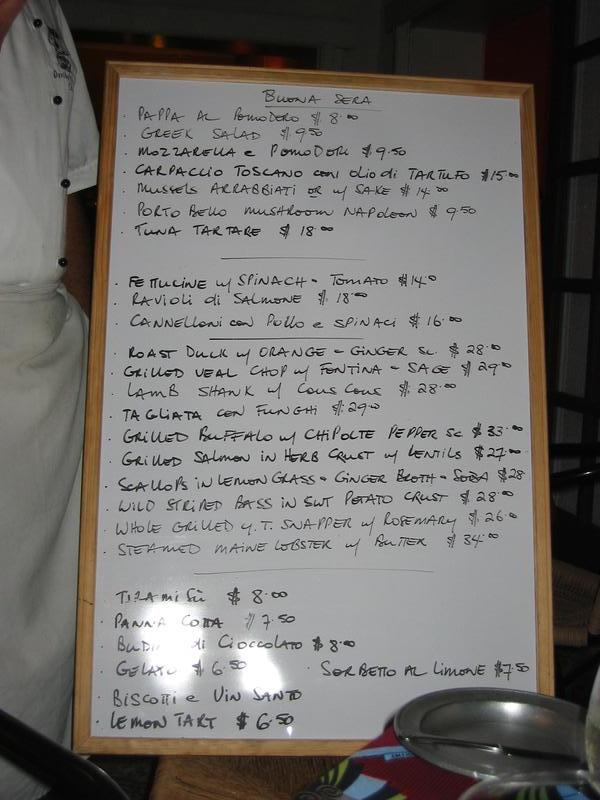 BUONA SERA
· PAPPA AL POMODORO $ 8.00
· GREEK SALAD $ 9.50
· MOZZARELLA e POMODORI $ 9.50
· CARPACCIO TOSCANO con olio di TARTUFO $15.00
· MUSSELS ARRABBIATI OR w/ SAKE $ 14.00
· PORTO BELLO MUSHROOM NAPOLEON $ 9.50
· TUNA TARTARE $ 18.00
· FETTUCINE w/ SPINACH - TOMATO $14.0
· RAVIOLI di SALMONE $ 18.00
· CANNELLONI con POLLO e SPINACI $ 16.00
· ROAST DUCK w/ ORANGE - GINGER SC. $ 28.00
· GRILLED VEAL CHOP w/ FONTINA - SAGE $ 29.00
· LAMB SHANK w/ COUS COUS $ 28.00
· TAGLIATA CON FUNGHI $ 29.00
· GRILLED BUFFALO w/ CHIPOLTE PEPPER SC $ 33.00
· GRILLED SALMON IN HERB CRUST w/ LENTILS $ 27.00
· SCALLOPS IN LEMON GRASS - GINGER BROTH - SOBA $28
· WILD STRIPED BASS IN SWT POTATO CRUST $ 28.00
· WHOLE GRILLED Y.T. SNAPPER w/ ROSEMARY $ 26.00
· STEAMED MAINE LOBSTER w/ BUTTER $ 34.00
· TIRAMISÙ $ 8.00
· PANNA COTTA $ 7.50
· BUDINO di CIOCCOLATO $ 8.00
· GELATO $ 6.50 · SORBETTO AL LIMONE $7.50
· BISCOTTI e VIN SANTO
· LEMON TART $ 6.50